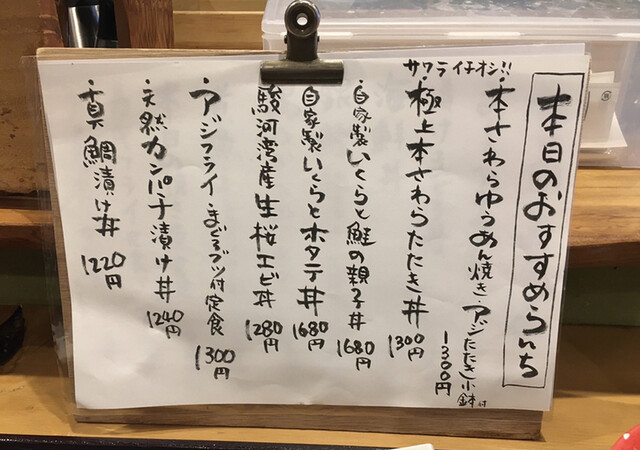 本日のおすすめらいち
サワライチオシ!!
・本さわらゆうあん焼き・アジたたき小鉢付
1300円
・極上本さわらたたき丼
1300円
・自家製いくらと鮭の親子丼
1680円
・自家製いくらとホタテ丼
1680円
・駿河湾産生桜エビ丼
1280円
・アジフライ・まぐろブツ付定食
1300円
・天然カンパチ漬け丼
1240円
・真鯛漬け丼
1220円